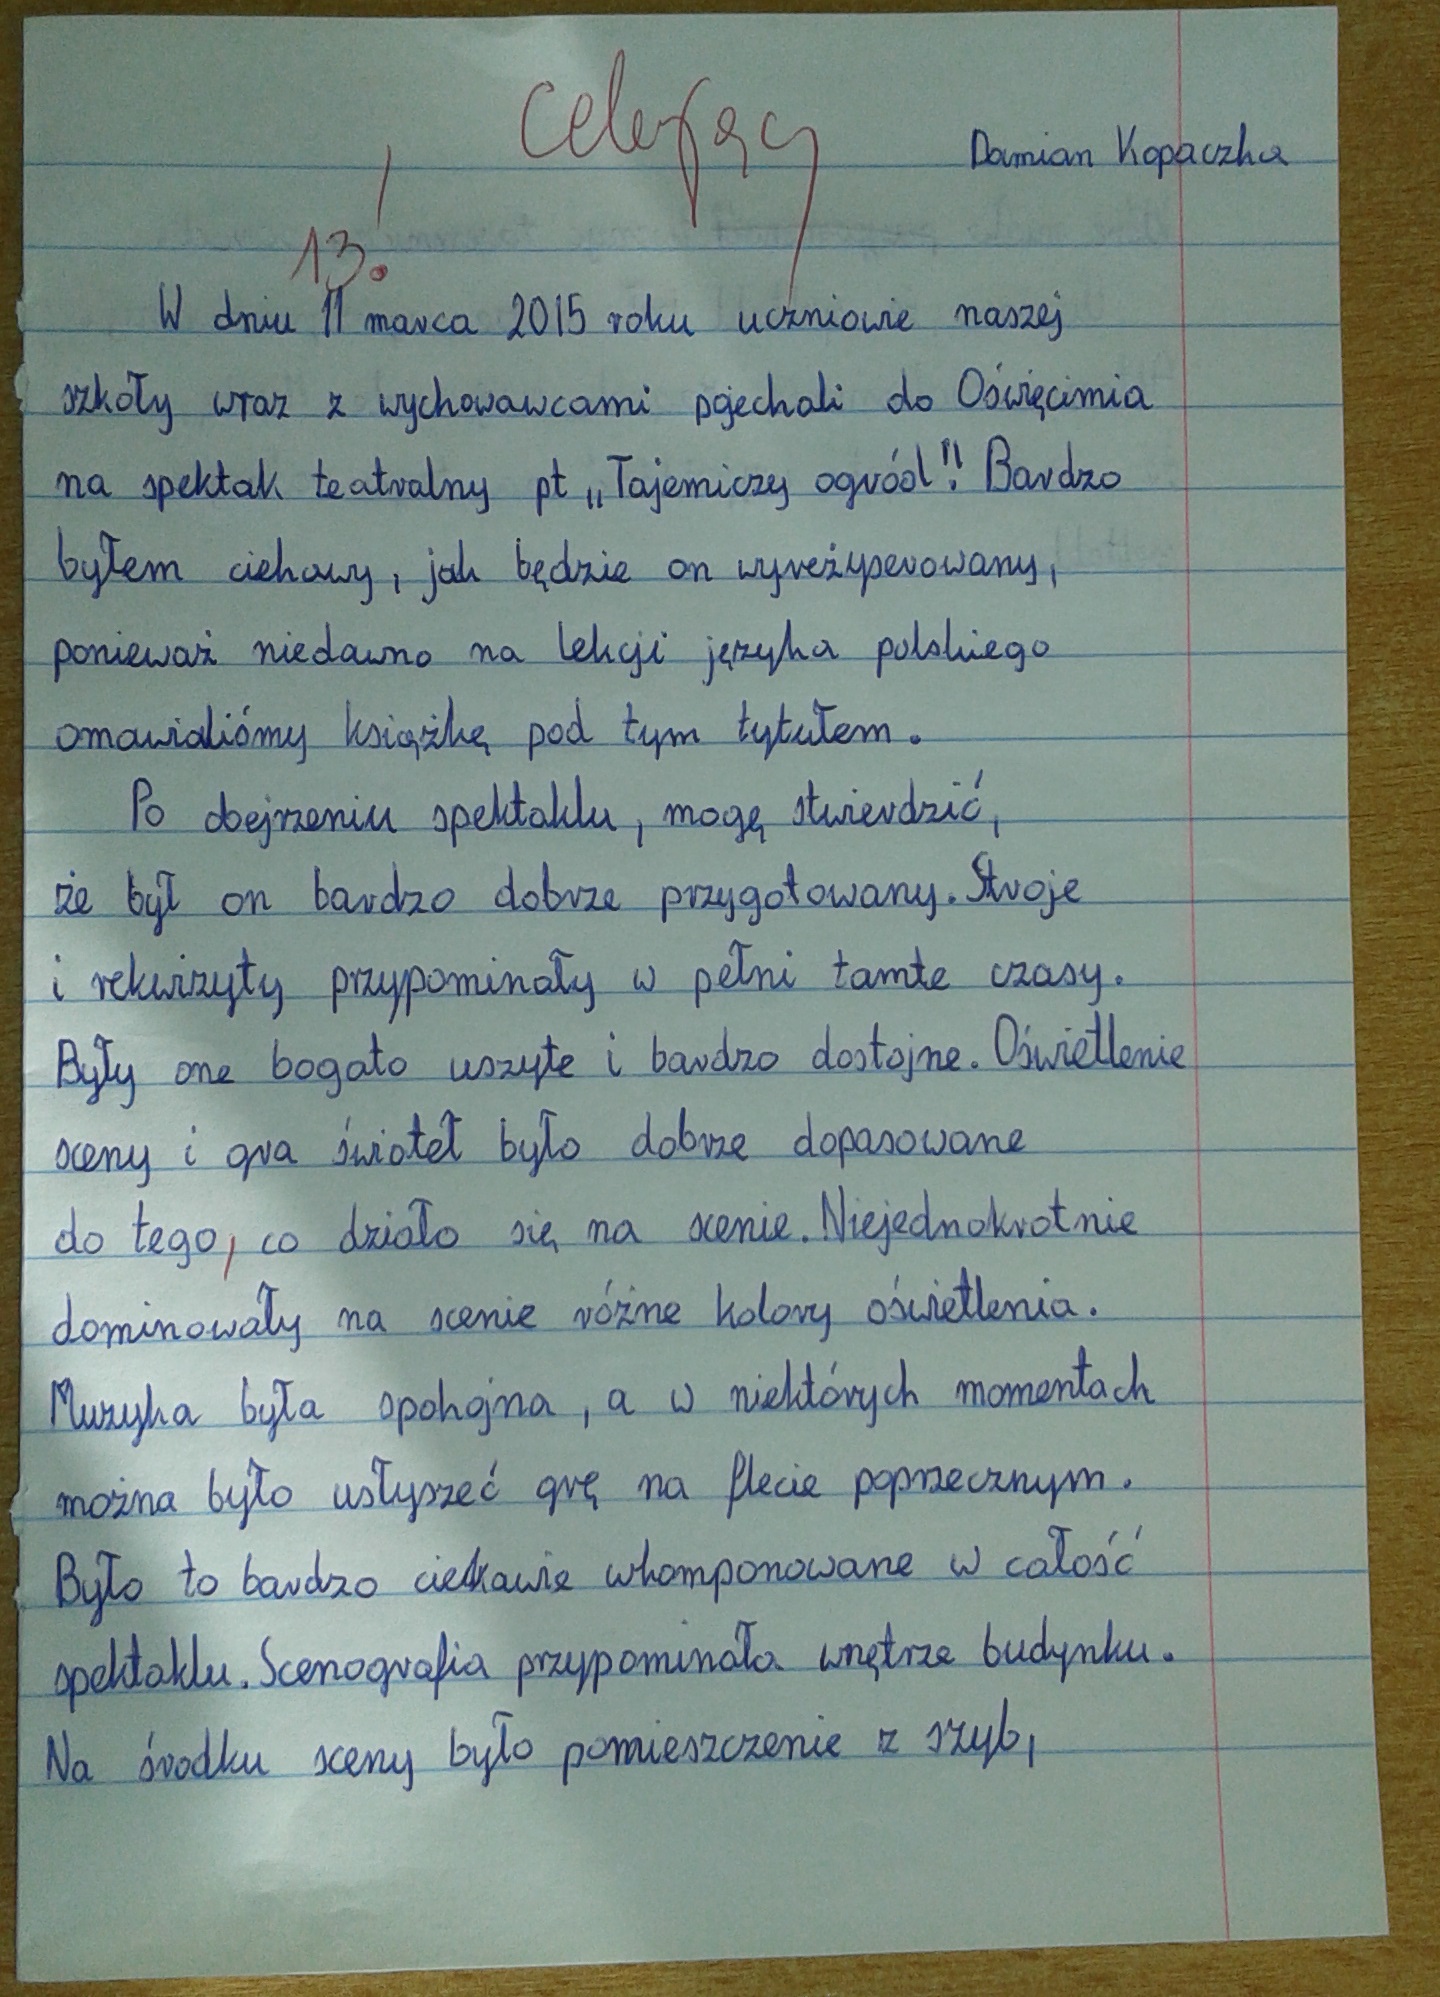 celujący
Damian Kopaczka
13!
W dniu 11 marca 2015 roku uczniowie naszej
szkoły wraz z wychowawcami pojechali do Oświęcimia
na spektak teatralny pt „Tajemiczy ogród”! Bardzo
byłem ciekawy, jak będzie on wyreżyserowany,
ponieważ niedawno na lekcji języka polskiego
omawialiśmy książkę pod tym tytułem.
Po obejrzeniu spektaklu, mogę stwierdzić,
że był on bardzo dobrze przygotowany. Stroje
i rekwizyty przypominały w pełni tamte czasy.
Były one bogato uszyte i bardzo dostojne. Oświetlenie
sceny i gra świateł było dobrze dopasowane
do tego, co działo się na scenie. Niejednokrotnie
dominowały na scenie różne kolory oświetlenia.
Muzyka była spokojna, a w niektórych momentach
można było usłyszeć grę na flecie poprzecznym.
Było to bardzo ciekawie wkomponowane w całość
spektaklu. Scenografia przypominała wnętrze budynku.
Na środku sceny było pomieszczenie z szyb,